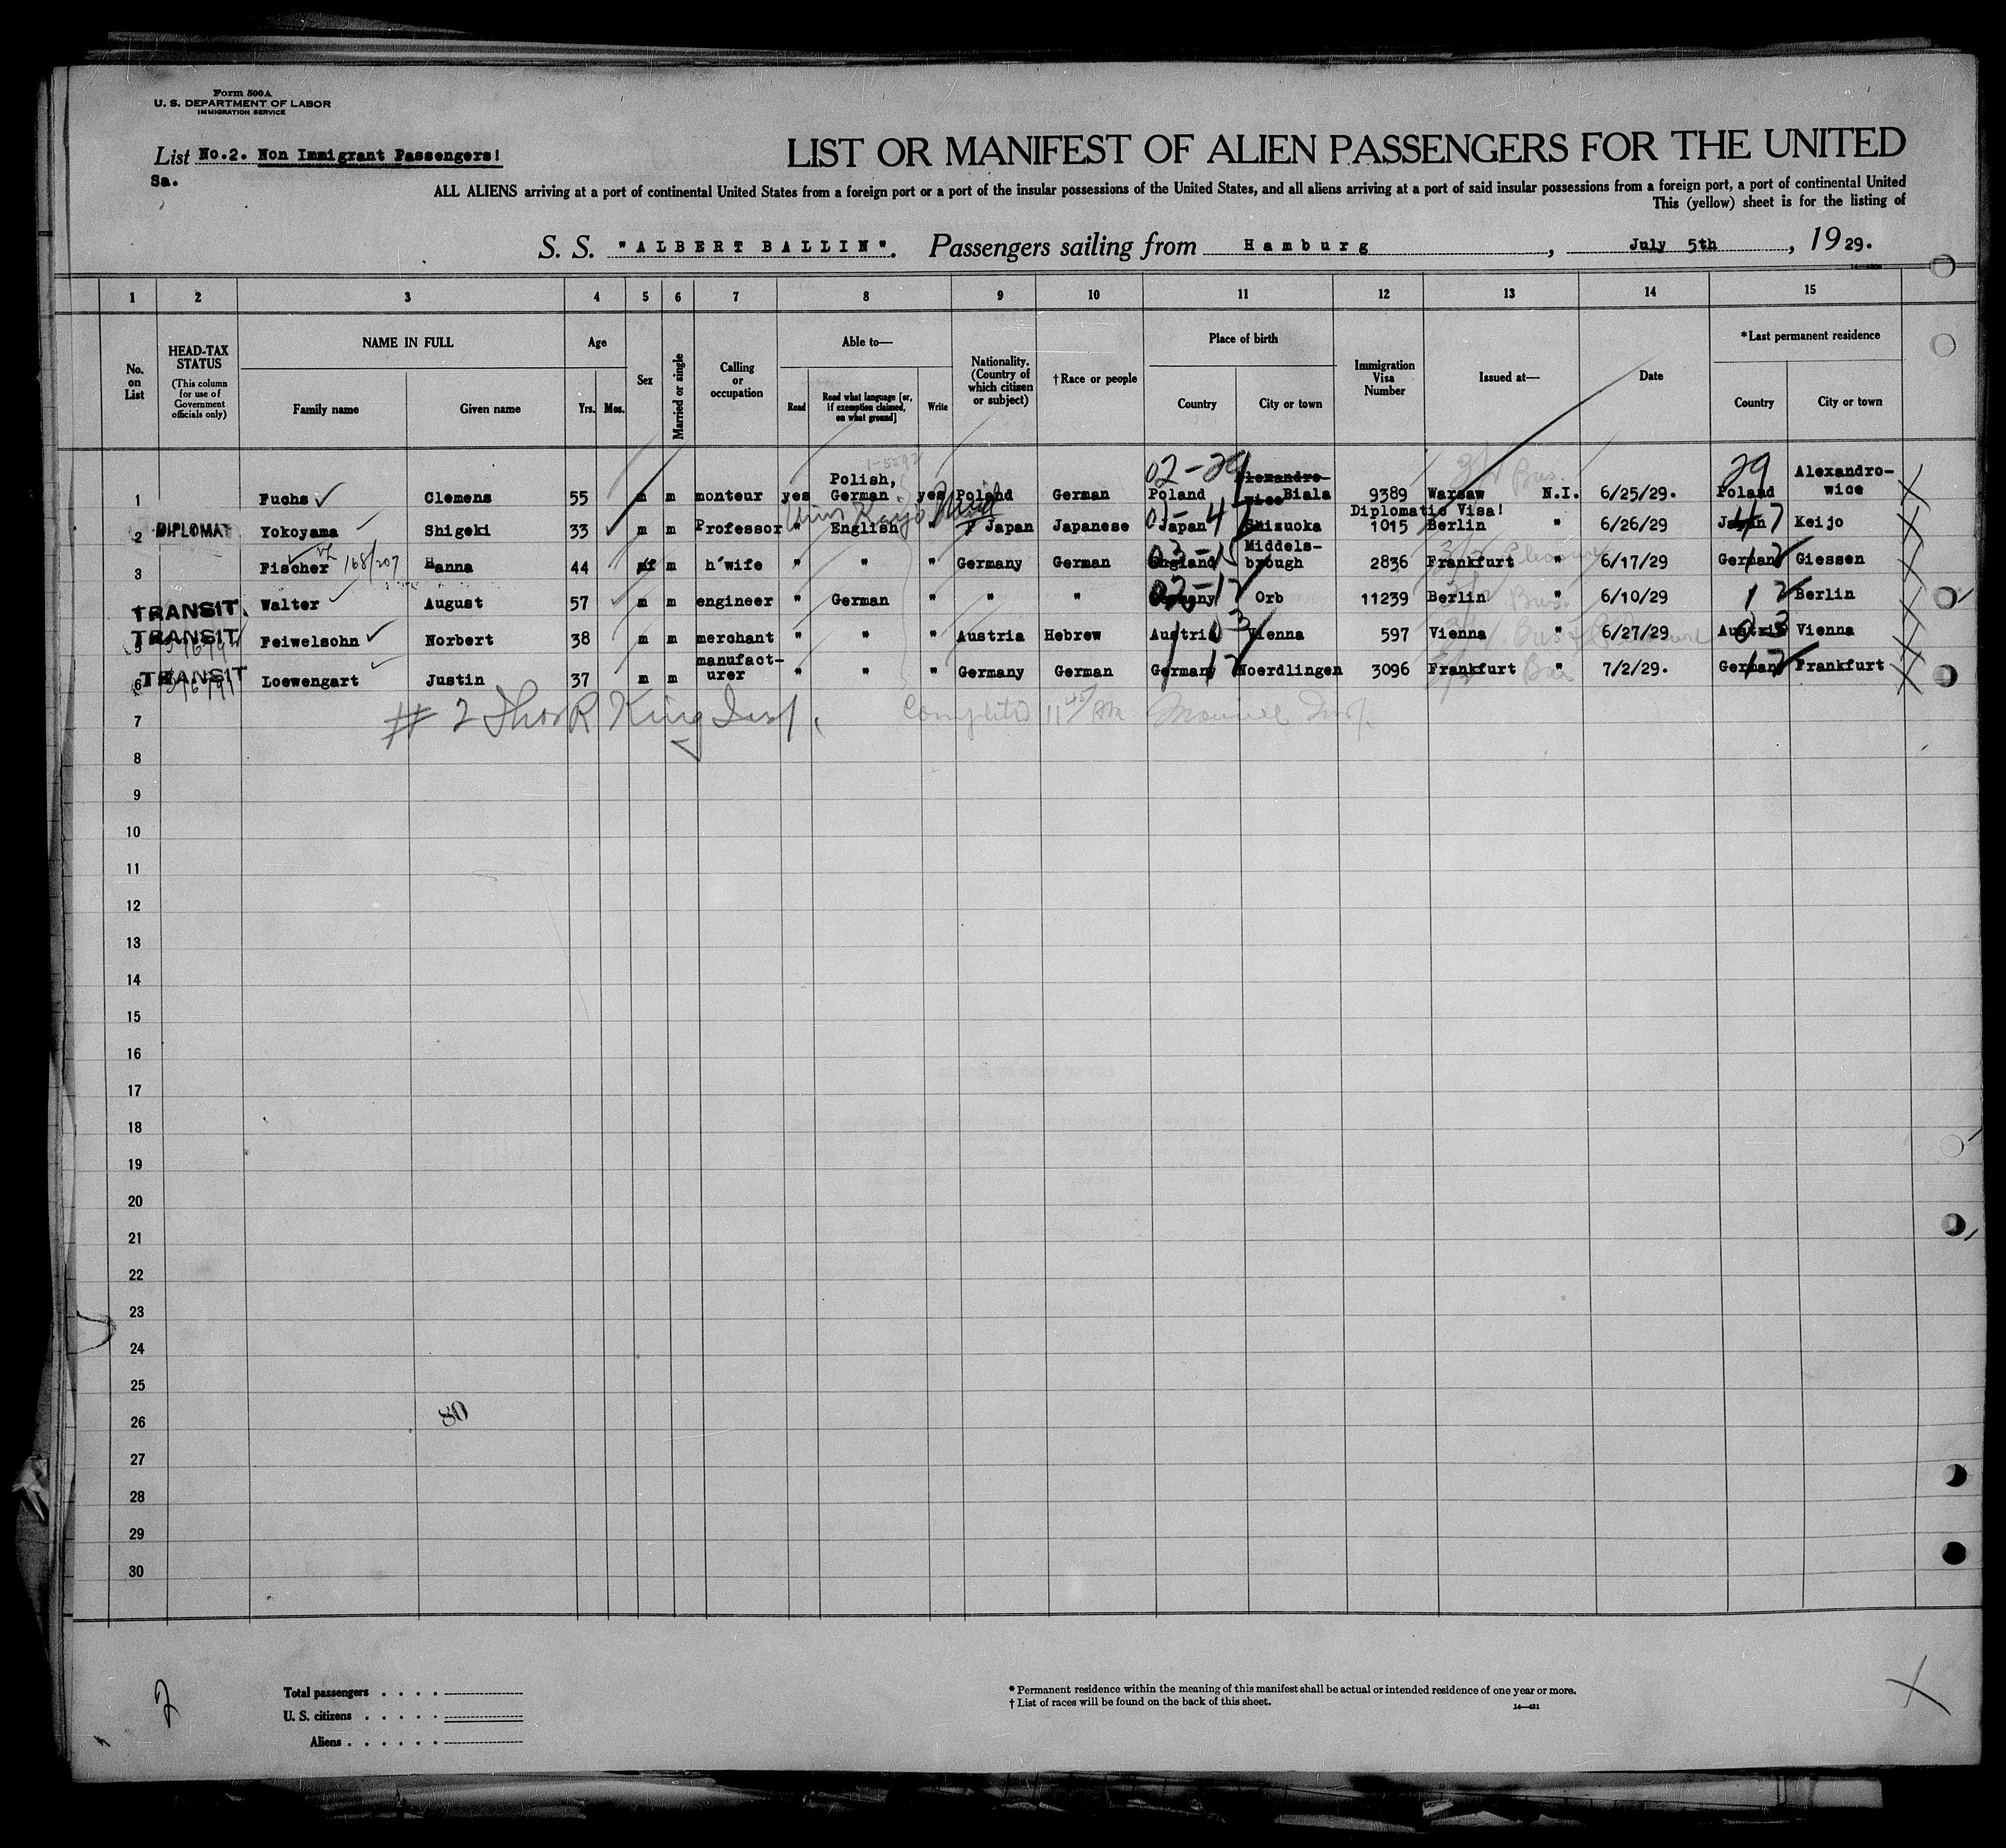 Form 500A
U. S. DEPARTMENT OF LABOR
IMMIGRATION SERVICE
List No.2. Non Immigrant Passengers!
Sa.
LIST OR MANIFEST OF ALIEN PASSENGERS FOR THE UNITED
ALL ALIENS arriving at a port of continental United States from a foreign port or a port of the insular possessions of the United States, and all aliens arriving at a port of said insular possessions from a foreign port, a port of continental United
This (yellow) sheet is for the listing of
S. S. "ALBERT BALLIN". Passengers sailing from Hamburg, July 5th, 1929.
1 2 3 4 5 6 7 8 9 10 11 12 13 14 15
No. on List
HEAD-TAX STATUS
(This column for use of Government officials only)
NAME IN FULL
Family name Given name
Age
Yrs. Mos.
Sex
Married or single
Calling or occupation
Able to—
Read
Read what language [or, if exemption claimed, on what ground]
Write
Nationality. (Country of which citizen or subject)
†Race or people
Place of birth
Country City or town
Immigration Visa Number
Issued at—
Date
*Last permanent residence
Country City or town
1 Fuchs Clemens 55 m m monteur yes Polish, German yes Poland German 02-29 Poland Alexandro-wice Biala 9389 Warsaw N.I. 6/25/29. 29 Poland Alexandro-wice
2 DIPLOMAT Yokoyama Shigeki 33 m m Professor " English " Japan Japanese Japan 47 Shizuoka Diplomatic Visa! 1015 Berlin " 6/26/29 Japan 47 Keijo
3 Fischer 168/207 Hanna 44 f m h'wife " " " Germany German England Middels-brough 2836 Frankfurt " 6/17/29 Germany 12 Giessen
TRANSIT. Walter August 57 m m engineer " German " " " Germany Orb 11239 Berlin " 6/10/29 12 Berlin
5 TRANSIT Feiwelsohn Norbert 38 m m merchant " " " Austria Hebrew Austria Vienna 597 Vienna " 6/27/29 Austria 03 Vienna
6 TRANSIT Loewengart Justin 37 m m manufact-urer " " " Germany German Germany Noerdlingen 3096 Frankfurt " 7/2/29. Germany Frankfurt
7 # 2 Thos R King Insp. Completed 11 45/AM
8
9
10
11
12
13
14
15
16
17
18
19
20
21
22
23
24
25
26 80
27
28
29
30
2
Total passengers . . . .
U. S. citizens . . . . .
Aliens . . . . . .
* Permanent residence within the meaning of this manifest shall be actual or intended residence of one year or more.
† List of races will be found on the back of this sheet.
14—421
X